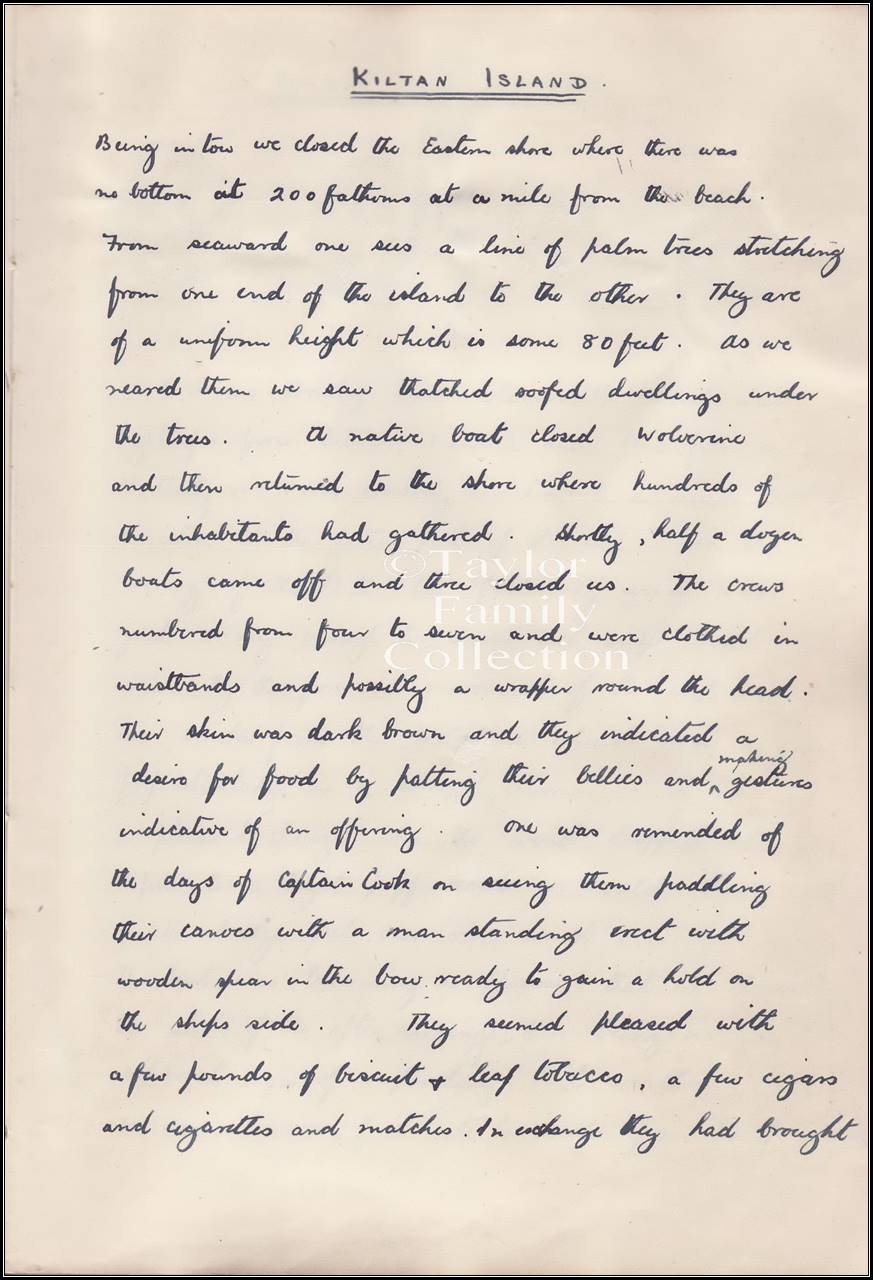 KILTAN ISLAND.
Being in tow we closed the Eastern shore where there was
no bottom at 200 fathoms at a mile from the beach.
From seaward one sees a line of palm trees stretching
from one end of the island to the other. They are
of a uniform height which is some 80 feet. As we
neared them we saw thatched roofed dwellings under
the trees. A native boat closed Wolverine
and then returned to the shore where hundreds of
the inhabitants had gathered. Shortly, half a dozen
boats came off and three closed us. The crews
©Taylor
Family
Collection
numbered from four to seven and were clothed in
waistbands and possibly a wrapper round the head.
Their skin was dark brown and they indicated a
making
desire for food by patting their bellies and ‸ gestures
indicative of an offering. One was reminded of
the days of Captain Cook on seeing them paddling
their canoes with a man standing erect with
wooden spear in the bow ready to gain a hold on
the ships side. They seemed pleased with
a few pounds of biscuit + leaf tobacco, a few cigars
and cigarettes and matches. In exchange they had brought